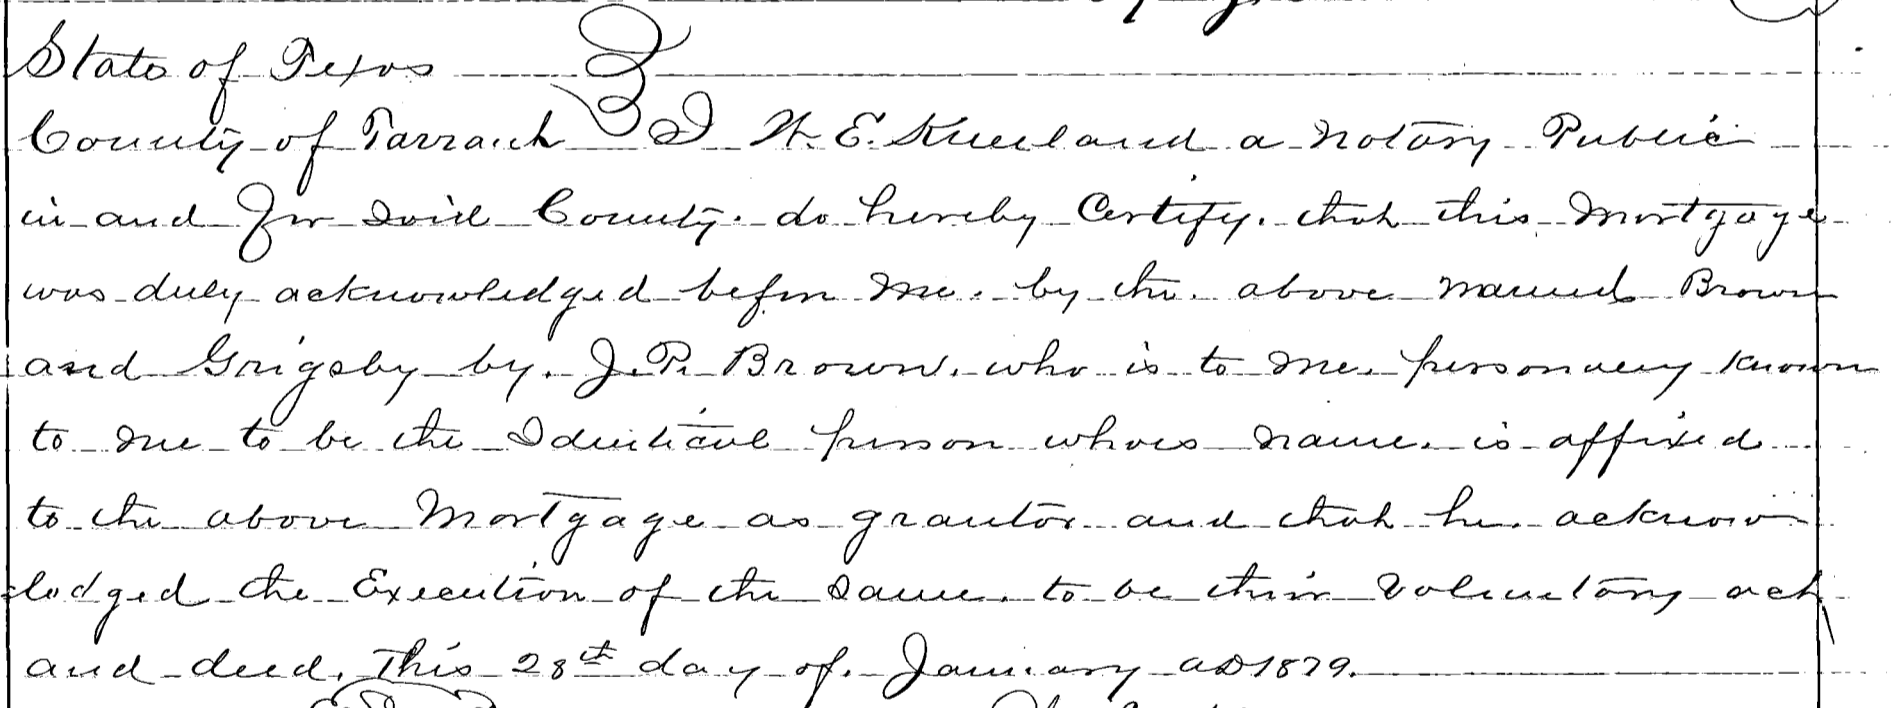 State of Texas
County of Tarrant I W. E. Kneeland a Notary Public
in and for Said County. do hereby Certify. that this Mortgage
was duly acknowledged before me. by the. above named Brown
and Grigsby by. J. P. Brown. who is to me. personally known
to me to be the Identical person whoes name. is affixed
to the above Mortgage as grantor and that he. acknow
=ledged the Execution of the same. to be their voluntary act
and deed. This 28th day of. January AD 1879.